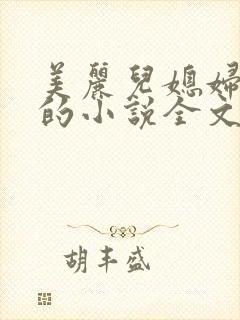 美麗兒媳婦
的小說全文
胡丰盛